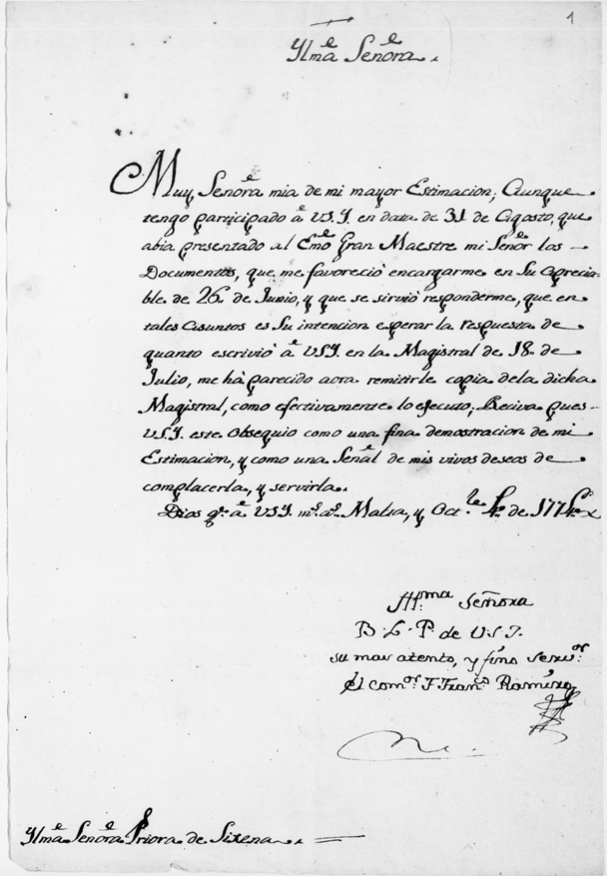 1
Ylmᵃ Señora.
Muy Señora mia de mi mayor Estimacion; Aunque
tengo participado â VSI. en data de 31 de Agosto, que
abia presentado al Emô Gran Maestre mi Señor los
Documentos, que me favoreciò encargarme en Su Aprecia
ble de 26 de Junio, y que se sirviò responderme, que en
tales Asuntos es Su intencion esperar la respuesta de
quanto escriviò â VSI. en la Magistral de 18. de
Julio, me hà parecido aora remitirle copia dela dicha
Magistral, como efectivamente lo efecuto; Reciva pues
VSI. este Obsequio como una fina demostracion de mi
Estimacion, y como una Señal de mis vivos deseos de
complacerla, y servirla.
Dios gᵉ â VSI. mˢ aˢ Malta, y Octʳᵉ 4. de 1774.
Señora
B. L. P. de V.S.I.
su mas atento, y fino Servᵒʳ
el comᵒʳ F. Franᶜᵒ Ramirez
Ylmᵃ Señora Priora de Sixena.